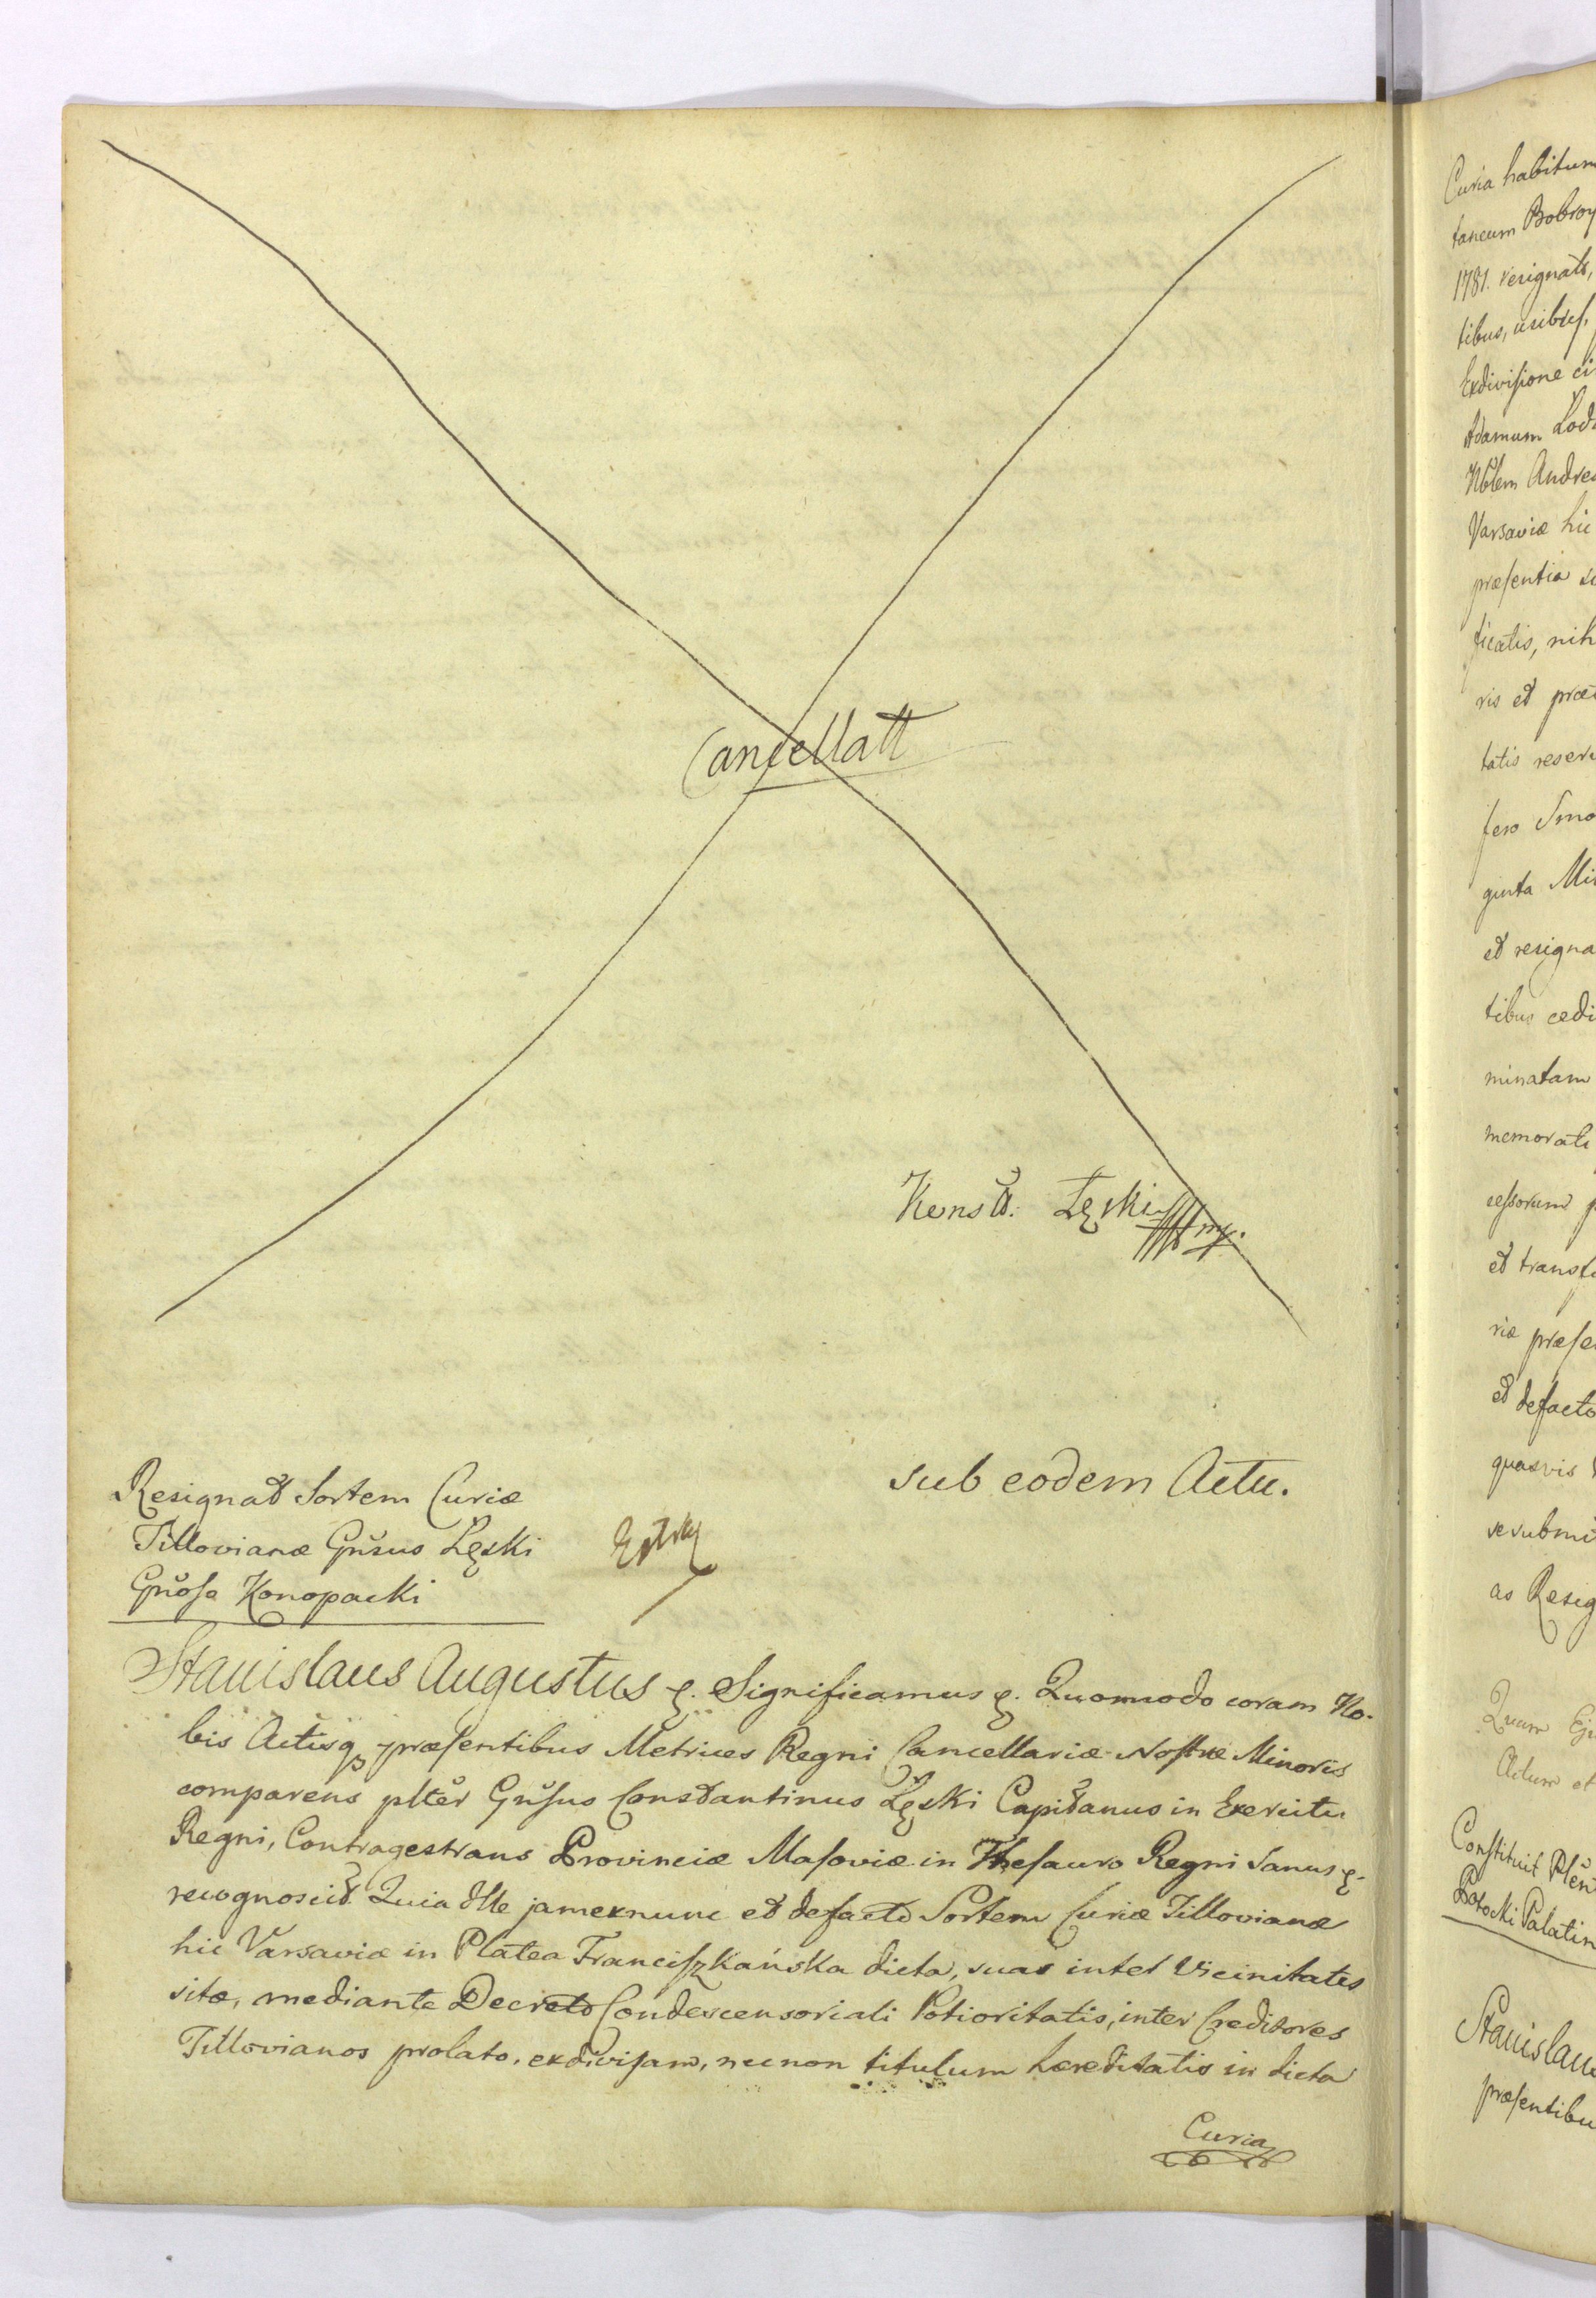 Cancellatt
Konstt. Łęski mp.
sub eodem Actu.
Resignat Sortem Curiæ
Tillovianæ Gnsus Łęski
Gnoso Konopacki
Stanislaus Augustus &. Significamus &. Quomodo coram No-
bis Actisq præsentibus Metrices Regni Cancellariæ Nostræ Minoris
comparens plter Gnsus Constantinus Łęski Capitanus in Exercitu
Regni, Contragestrans Provinciæ Masoviæ in Thesauro Regni Sanus &.
recognoscit. Quia Ille jamexnunc et defacto Sortem Curiæ Tillovianæ
hic Varsaviæ in Platea Franciszkańska dicta, suas inter Vicinitates
sitæ, mediante Decreto Condescensoriali Potioritatis, inter Creditores
Tillovianos prolato, exdivisam, necnon titulum hæreditatis in dicta
Curia
Curia habitum
taneum
1781. resignats,
tibus,
Exdivisione
Adamum
Nblem
Varsaviæ hic
præsentia
ficatis,
ris et
tatis
ginta
et
tibus
minatam
memorati
cessorum
et
riæ
et defacto
quasvis
se
as
Quam
Actum et
Constituit Plen
Potocki Palatin
Stanislau
præsentibu